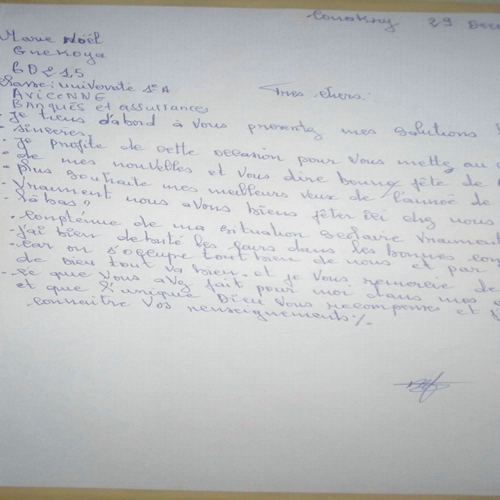 Conakry 29 Dece
Marie Noël
Guekoya
GD 215
Classe: université 1e A
AVICENNE
Banques et assurrances
Tres chers.
- Je tiens d'abord à vous presentez mes salutions
sinceries.
- Je profite de cette occasion pour vous mettg au
de mes nouvelles et vous dire bonne fête de
- Plus souhaite mes meilleurs veux de l'année de
- Vraument nous avons biens fêter ici chez nous
làbas?
- Conplénue de ma situation scolaire vraument
j'ai bien debuté les fours dans les bonnes con
- car on s'occupe tout bien de nous et par
de bieu tout va bien et je vous remercie de
- Ce que vous avez fait pour moi dans mes
et que l'unique Dieu vous recompense et f
connaitre vos renseignements./.